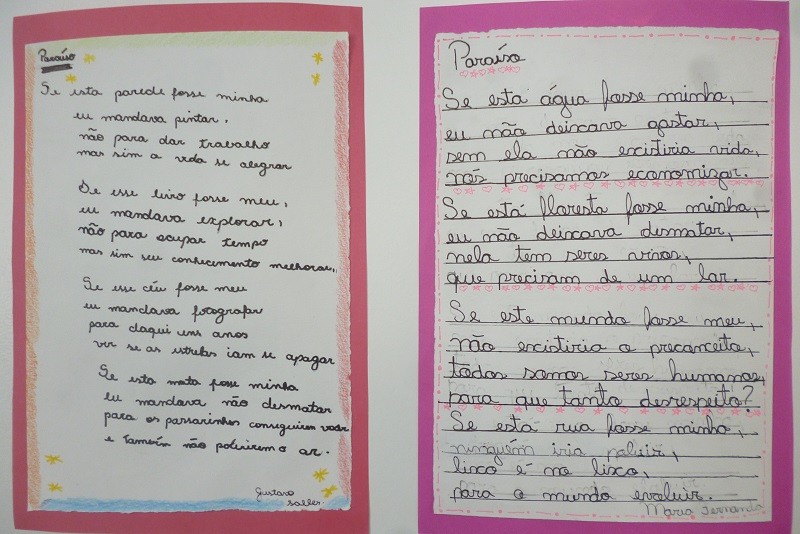 Paraíso
Se esta parede fosse minha
eu mandava pintar,
não para dar trabalho
mas sim a vida se alegrar
Se esse livro fosse meu,
eu mandava explorar,
não para ocupar tempo
mas sim seu conhecimento melhorar,
Se esse céu fosse meu
eu mandava fotografar
para daqui uns anos
ver se as estrelas iam se apagar
Se esta mata fosse minha
eu mandava não desmatar
para os passarinhos conseguirem voar
e também não poluirem o ar.
Gustavo
Salles
Paraíso
Se esta água fosse minha,
eu não deixava gastar,
sem ela não existiria vida,
nós precisamos economizar.
Se está floresta fosse minha,
eu não deixava desmatar,
nela tem seres vivos,
que precisam de um lar.
Se este mundo fosse meu,
não existiria o preconceito,
todos somos seres humanos,
para que tanto desrespeito?
Se está rua fosse minha,
ninguém iria poluir,
lixo é no lixo,
para o mundo evoluir.
Maria Fernanda